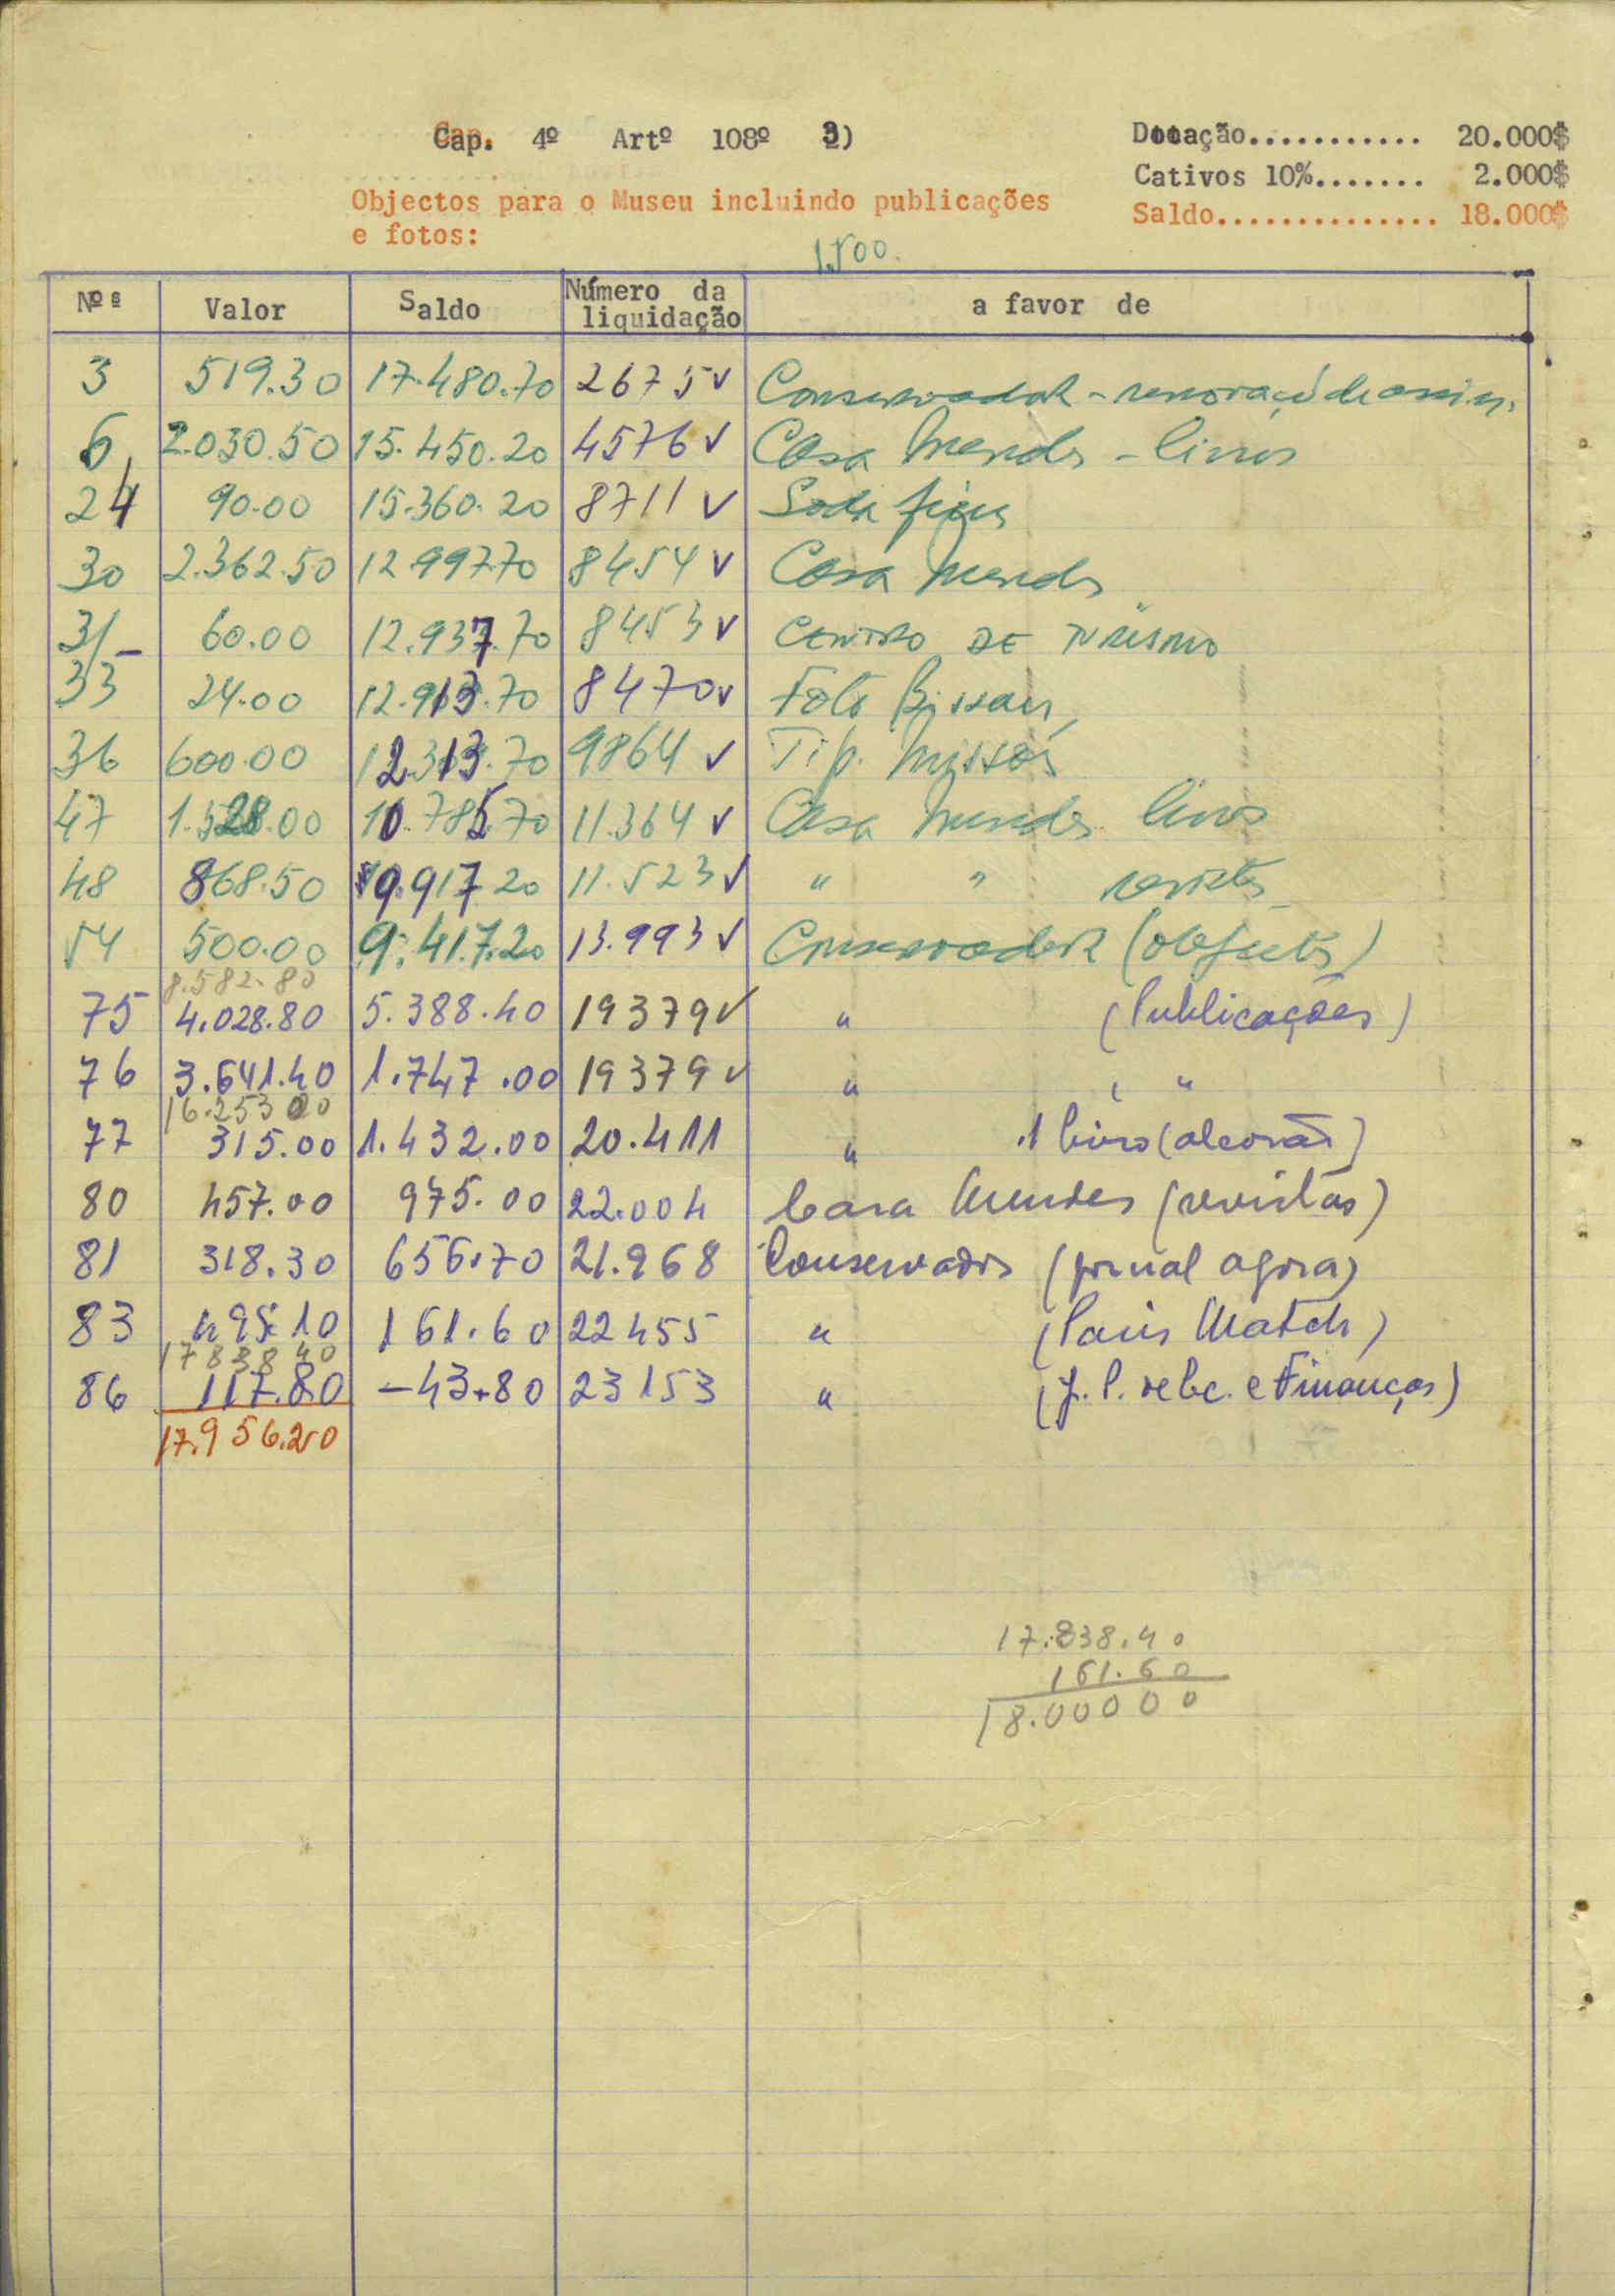 Cap. 4º Artº 108º 3)
Dotação............ 20.000$
Cativos 10%....... 2.000$
Saldo.............. 18.000$
Objectos para o Museu incluindo publicações
e fotos:
1.500.
Nºs Valor Saldo Número da liquidação a favor de
3 519.30 17.480.70 2675 v Conservador - renovação de assin.
6 2.030.50 15.450.20 4576 v Casa Mendes - livros
24 90.00 15.360.20 8711 v
30 2.362.50 12.997.70 8454 v Casa Mendes
31 60.00 12.937.70 8453 v CENTRO DE TURISMO
33 24.00 12.913.70 8470 v Foto Bissau
36 600.00 12.313.70 9864 v Tip. Missões
47 1.528.00 10.785.70 11.364 v Casa Mendes livros
48 868.50 9.917.20 11.523 v " " revistas
54 500.00 9.417.20 13.993 v Conservador (objectos)
8.582.80
75 4.028.80 5.388.40 19379 v " (Publicações)
76 3.641.40 1.747.00 19379 v " "
16.253 00
77 315.00 1.432.00 20.411 " 1 livro (alcorão)
80 457.00 975.00 22.004 Casa Mendes (revistas)
81 318.30 656.70 21.968 Conservador (jornal agora)
83 495.10 161.60 22455 " (Paris Match)
17838 40
86 117.80 -43.80 23153 " (J. P. e Finanças)
17.956.20
17.838.40
161.60
18.000 00